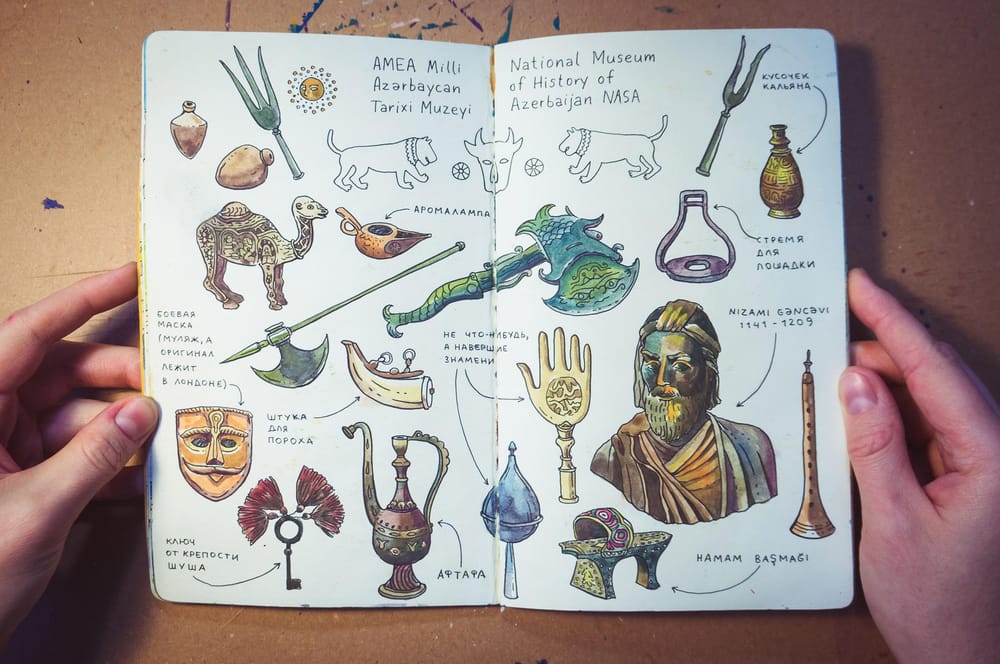 AMEA Milli
Azərbaycan
Tarixi Muzeyi
АРОМАЛАМПА
БОЕВАЯ
МАСКА
(МУЛЯЖ, А
ОРИГИНАЛ
ЛЕЖИТ
В ЛОНДОНЕ)
ШТУКА
ДЛЯ
ПОРОХА
НЕ ЧТО-НИБУДЬ,
А НАВЕРШИЕ
ЗНАМЕНИ
КЛЮЧ
ОТ КРЕПОСТИ
ШУША
АФТАФА
National Museum
of History of
Azerbaijan NASA
КУСОЧЕК
КАЛЬЯНА
СТРЕМЯ
ДЛЯ
ЛОШАДКИ
NIZAMI GƏNCƏVI
1141 - 1209
HAMAM BAŞMAĞI